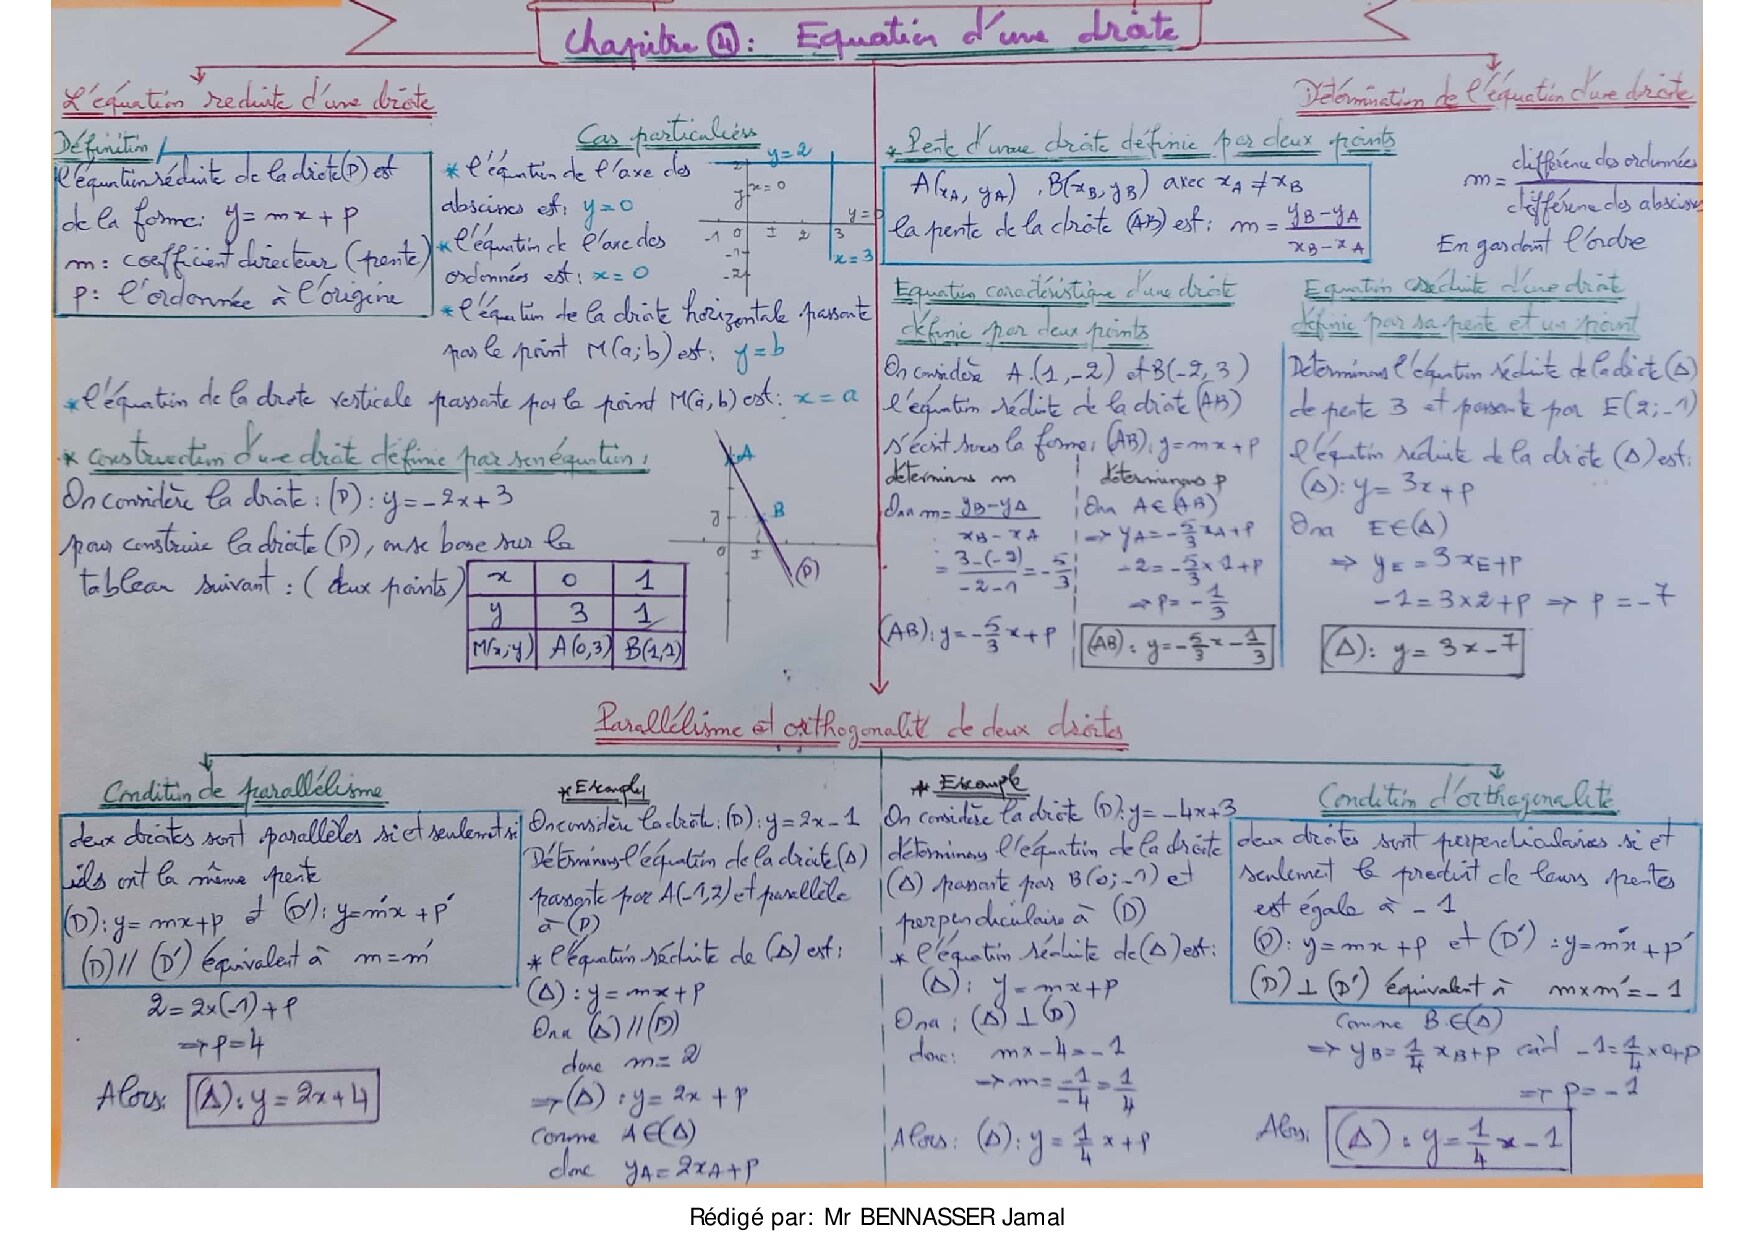 Chapitre ④: Equation d'une droite
L'équation reduite d'une droite
Définition
l'équation réduite de la droite (D) est
de la forme: y = mx + p
m : coefficient directeur (pente)
p : l'ordonnée à l'origine
Cas particuliers
* l'équation de l'axe des
abscisses est: y = 0
* l'équation de l'axe des
ordonnées est: x = 0
* l'équation de la droite horizontale passant
par le point M(a; b) est: y = b
y = 2
x = 0
y = 0
-1 0 1 2 3
x = 3
-1
-2
* l'équation de la droite verticale passante par le point M(a, b) est: x = a
* construction d'une droite définie par son équation:
On considère la droite: (D): y = -2x + 3
pour construire la droite (D), on se base sur le
tableau suivant: (deux points)
x 0 1
y 3 1
M(x; y) A(0,3) B(1,1)
A
B
J
0 I
(D)
Détermination de l'équation d'une droite
* Pente d'une droite définie par deux points
A(xA, yA), B(xB, yB) avec xA ≠ xB
la pente de la droite (AB) est: m = yB - yA / xB - xA
m = différence des ordonnées / différence des abscisses
En gardant l'ordre
Equation caractéristique d'une droite
définie par deux points
On considère A(1, -2) et B(-2, 3)
l'équation réduite de la droite (AB)
s'écrit sous la forme: (AB): y = mx + p
déterminons m
On a m = yB - yA / xB - xA
= 3 - (-2) / -2 - 1 = -5/3
(AB): y = -5/3 x + p
déterminons p
On a A ∈ (AB)
⇒ yA = -5/3 xA + p
-2 = -5/3 × 1 + p
⇒ p = -1/3
(AB): y = -5/3 x - 1/3
Equation réduite d'une droite
définie par sa pente et un point
Déterminons l'équation réduite de la droite (Δ)
de pente 3 et passante par E(2; -1)
l'équation reduite de la droite (Δ) est:
(Δ): y = 3x + p
On a E ∈ (Δ)
⇒ yE = 3xE + p
-1 = 3×2 + p ⇒ p = -7
(Δ): y = 3x - 7
Parallélisme et orthogonalité de deux droites
Condition de parallélisme
deux droites sont parallèles si et seulement si
ils ont la même pente
(D): y = mx + p et (D'): y = m'x + p'
(D) // (D') équivalent à m = m'
2 = 2×(-1) + p
⇒ p = 4
Alors: (Δ): y = 2x + 4
* Exemple
On considère la droite: (D): y = 2x - 1
Déterminons l'équation de la droite (Δ)
passante par A(-1, 2) et parallèle
à (D)
* l'équation réduite de (Δ) est:
(Δ): y = mx + p
On a (Δ) // (D)
donc m = 2
⇒ (Δ): y = 2x + p
Comme A ∈ (Δ)
donc yA = 2xA + p
* Exemple
On considère la droite (D): y = -4x + 3
déterminons l'équation de la droite
(Δ) passante par B(0; -1) et
perpendiculaire à (D)
* l'équation réduite de (Δ) est:
(Δ): y = mx + p
On a: (Δ) ⊥ (D)
donc: m × -4 = -1
⇒ m = -1/-4 = 1/4
Alors: (Δ): y = 1/4 x + p
Condition d'orthogonalité
deux droites sont perpendiculaires si et
seulement le produit de leurs pentes
est égale à -1
(D): y = mx + p et (D'): y = m'x + p'
(D) ⊥ (D') équivalent à m × m' = -1
Comme B ∈ (Δ)
⇒ yB = 1/4 xB + p càd -1 = 1/4 × 0 + p
⇒ p = -1
Alors: (Δ): y = 1/4 x - 1
Rédigé par: Mr BENNASSER Jamal